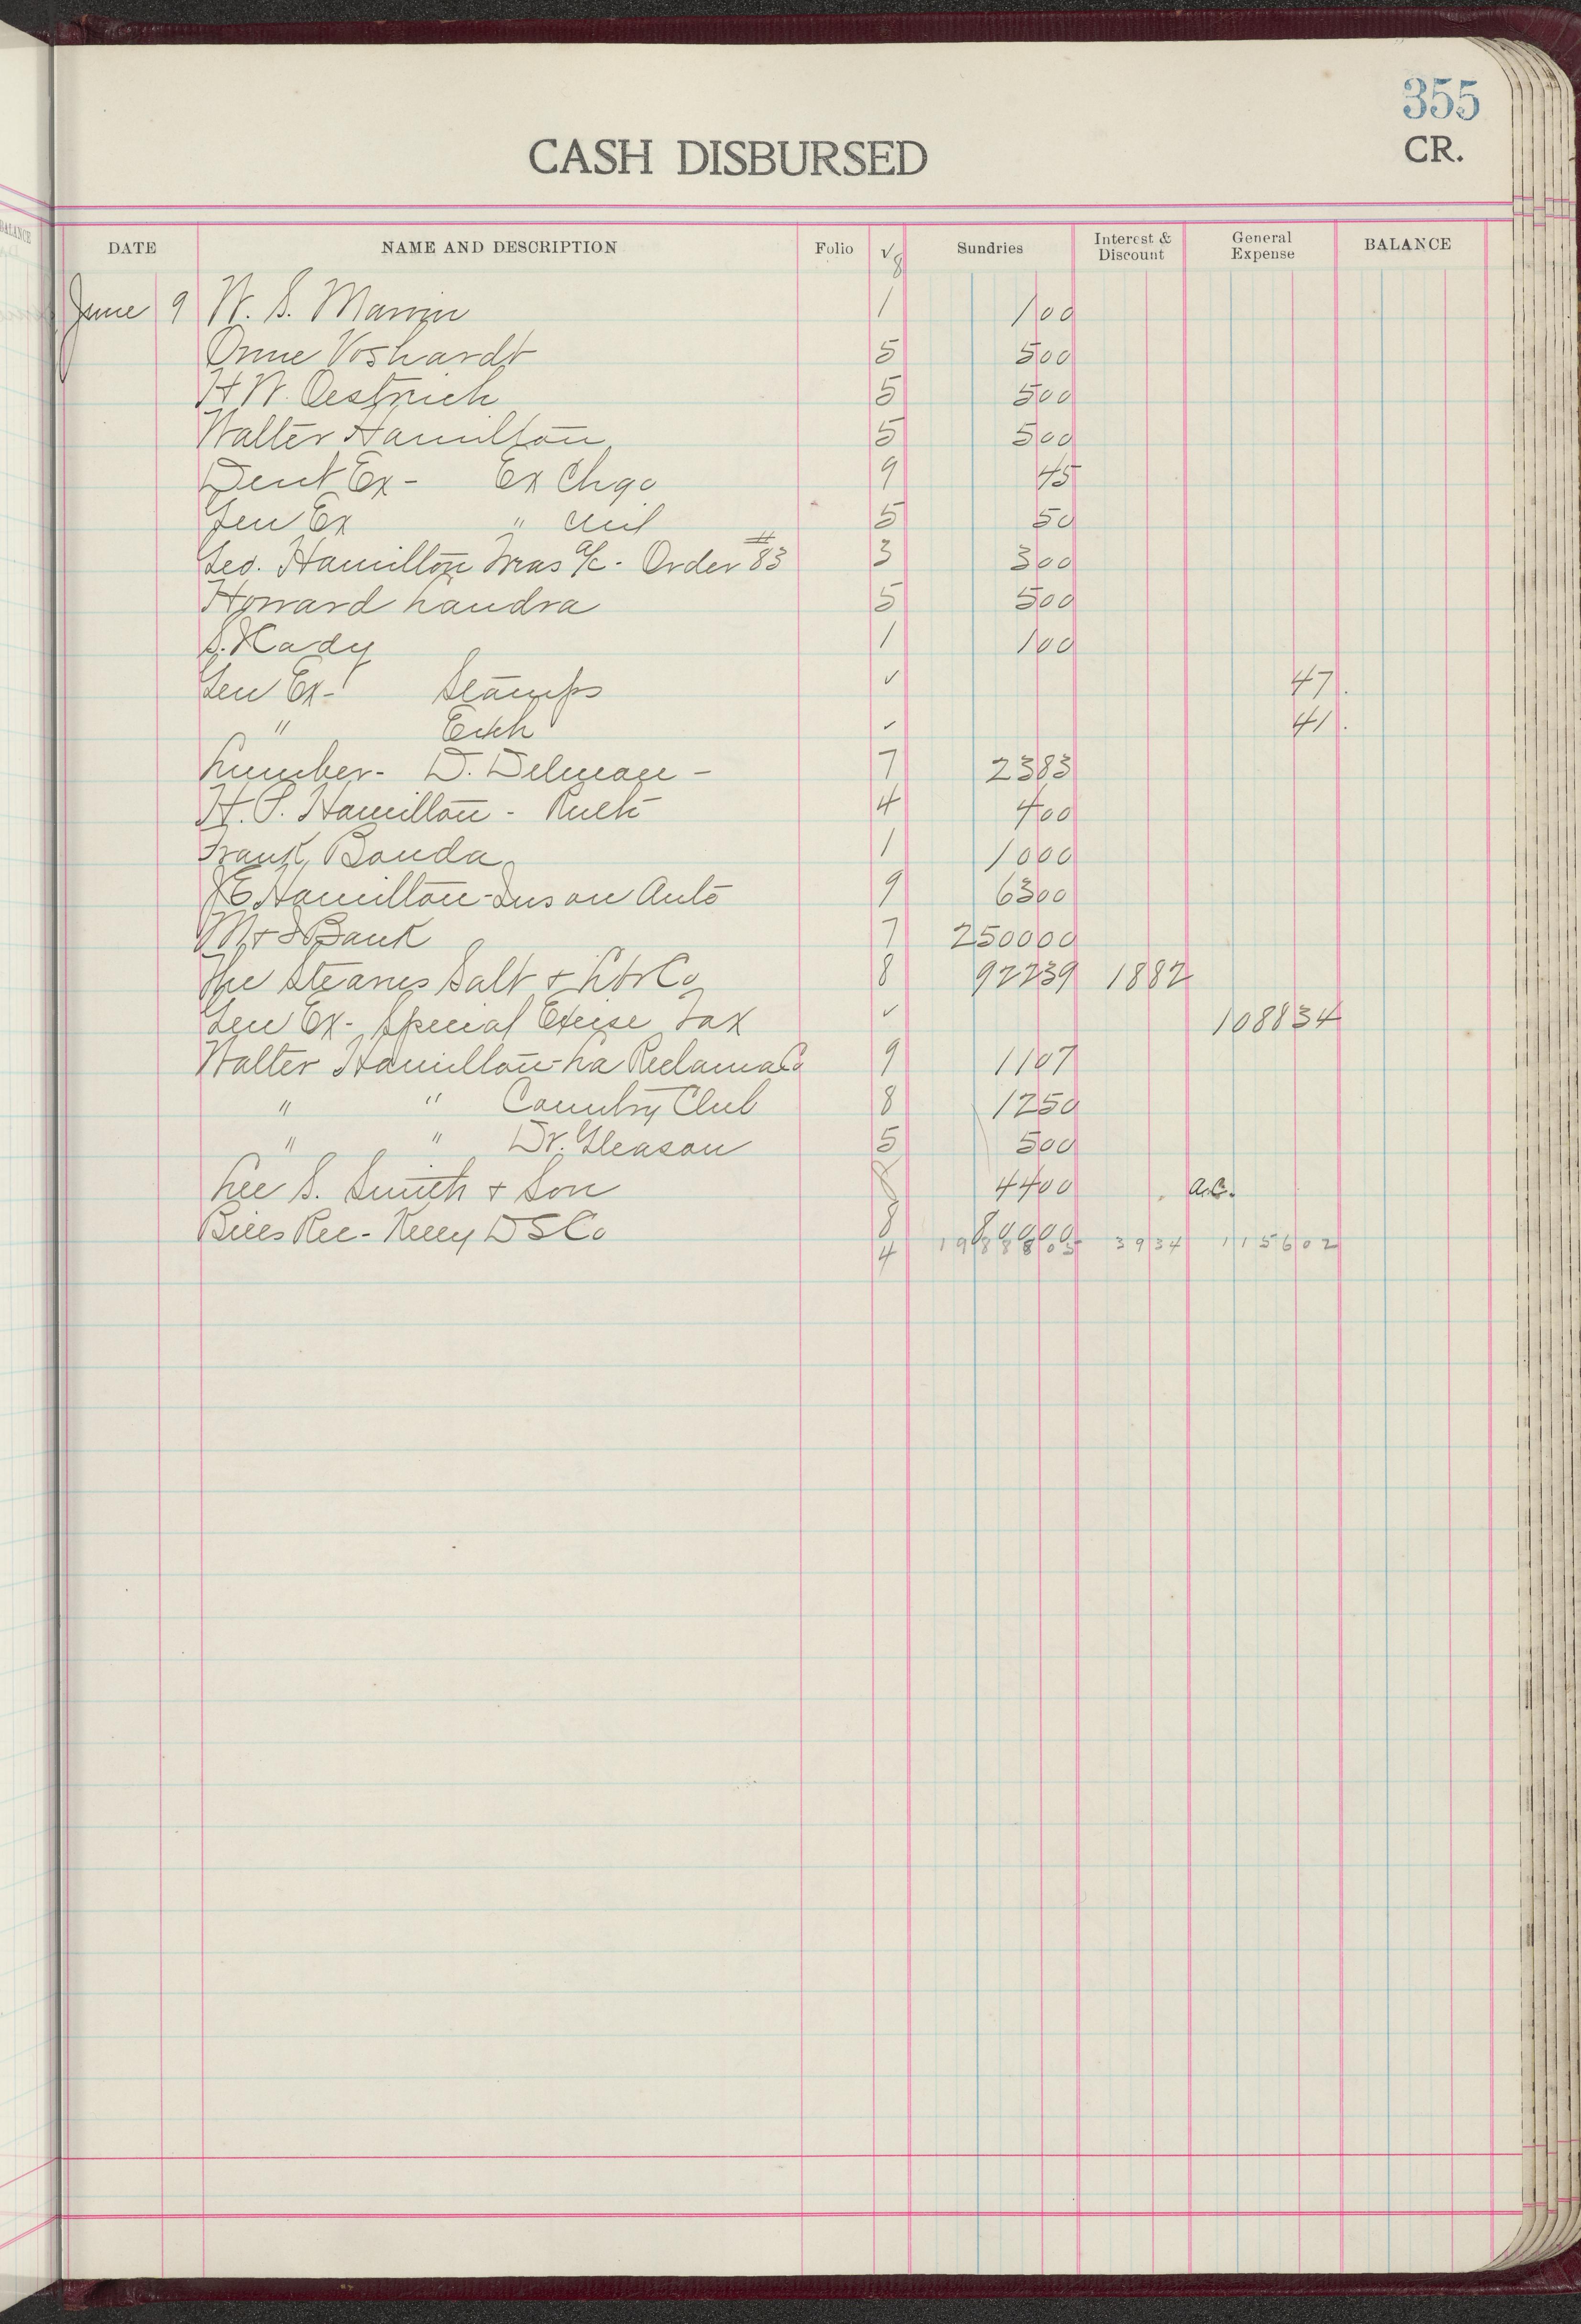 355
CASH DISBURSED CR.
BALANCE
DATE NAME AND DESCRIPTION Folio ✓ Sundries Interest & Discount General Expense BALANCE
8
June 9 W. S. Marvin 1 1 00
Orme Voshardt 5 5 00
H W. Oestrich 5 5 00
Walter Hamilton 5 5 00
Dent Ex - Ex Chgo 9 45
Gen Ex " Mil 5 50
Geo. Hamilton Treas a/c - Order #83 3 3 00
Howard Landra 5 5 00
S. Kady 1 1 00
Gen Ex - Stamps ✓ 47.
" Exch ✓ 41.
Lumber - D. Delmage - 7 23 83
H. P. Hamilton - Ruth 4 4 00
Frank Bonda 1 10 00
J E Hamilton - Ins on Auto 9 63 00
M & I Bank 7 2500 00
The Stearns Salt & Lbr Co 8 922 39 18 82
Gen Ex - Special Excise Tax ✓ 1088 34
Walter Hamilton - La Reclama Co 9 11 07
" " Country Club 8 12 50
" " Dr. Gleason 5 5 00
Lee S. Smith & Son 8 44 00 a.c.
Bills Rec - Kelly D S Co 8 800 00
4 19888 05 39 34 1156 02